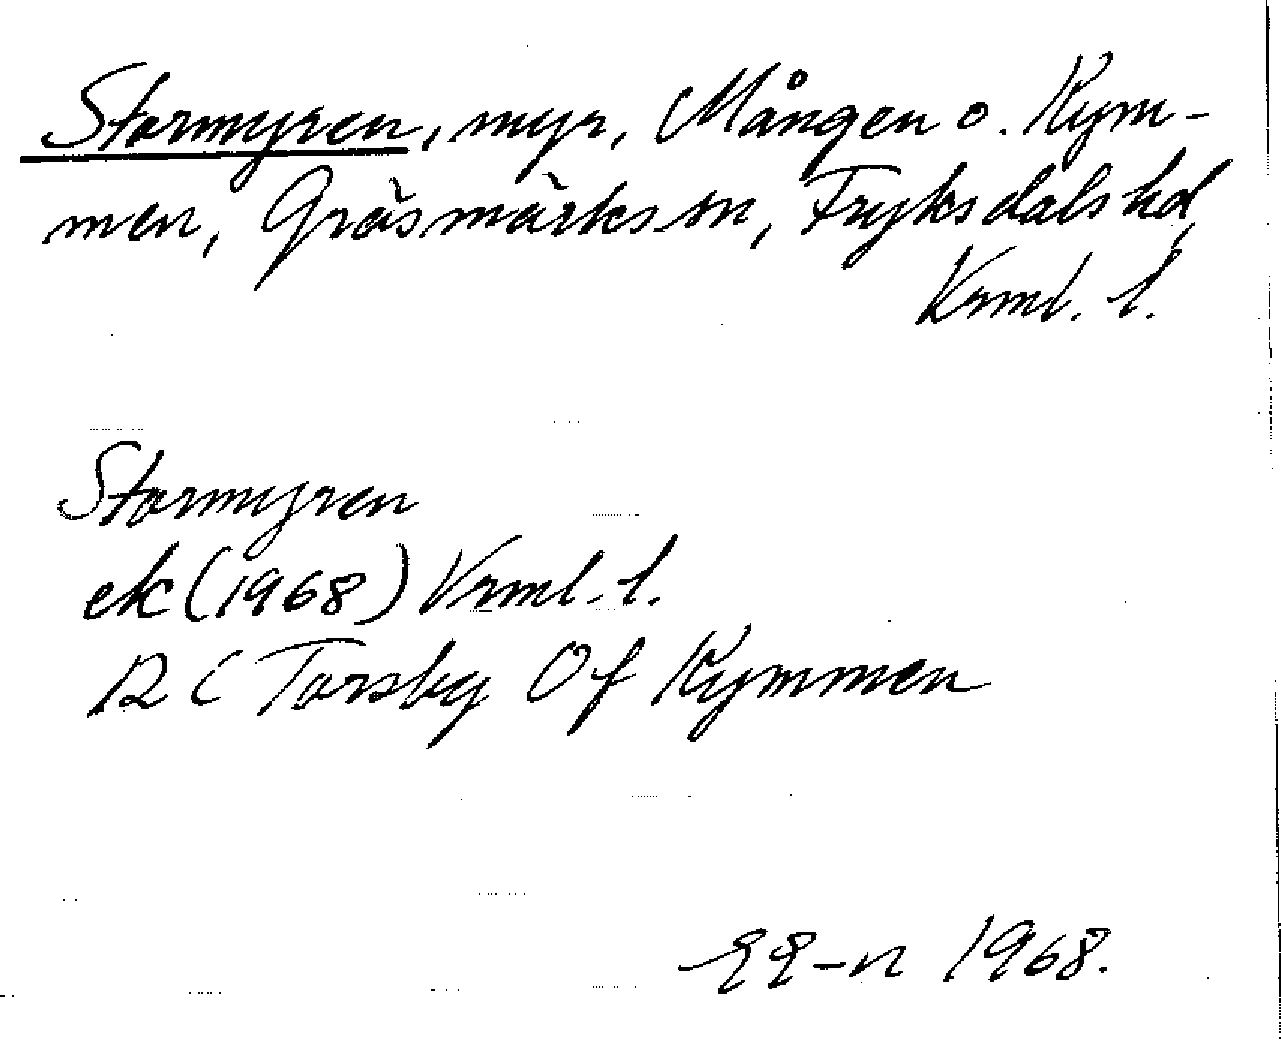 Stormyren, myr, Mången o. Kym-
men, Gräsmarks sn, Fryksdals hd,
Vrml. l.
Stormyren
ek (1968) Vrml. l.
12 C Torsby Of Kymmen
1968.